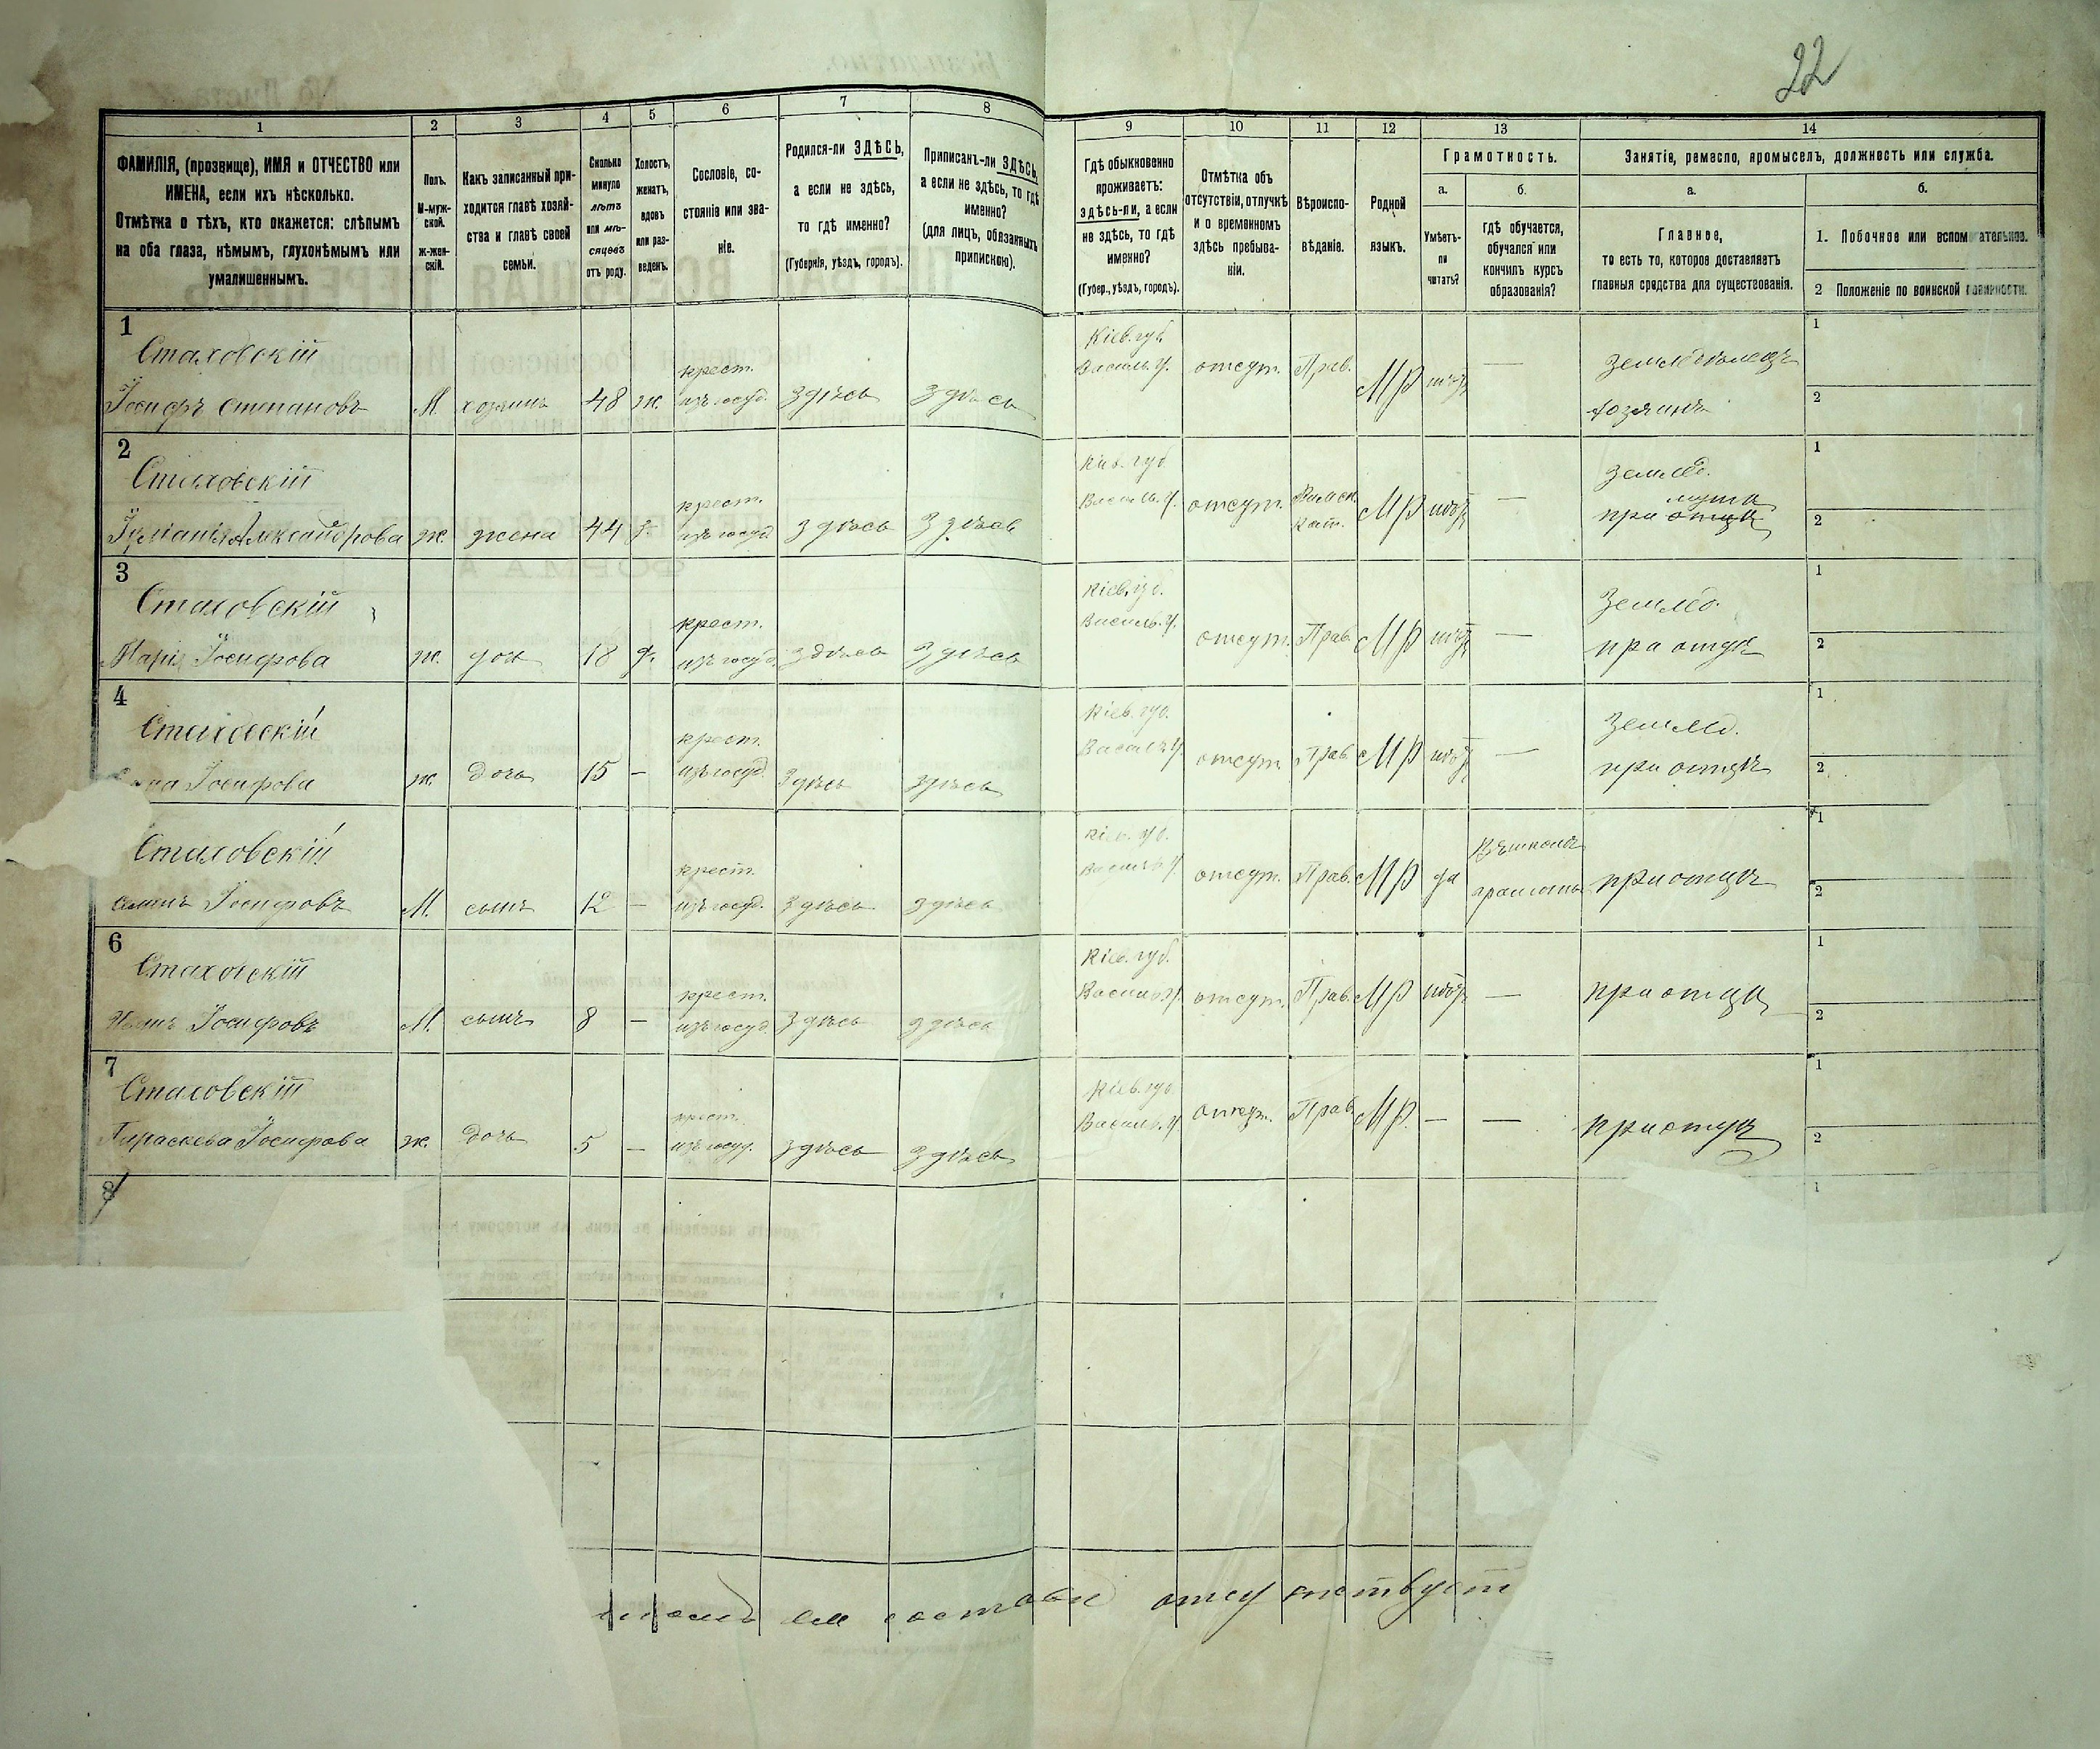 22
1 2 3 4 5 6 7 8 9 10 11 12 13 14
ФАМИЛІЯ, (прозвище), ИМЯ и ОТЧЕСТВО или
ИМЕНА, если ихъ нѣсколько.
Отмѣтка о тѣхъ, кто окажется: слѣпымъ
на оба глаза, нѣмымъ, глухонѣмымъ или
умалишеннымъ.
Полъ.
М-муж-
ской.
Ж-жен-
скій.
Какъ записанный при-
ходится главѣ хозяй-
ства и главѣ своей
семьи.
Сколько
минуло
лѣтъ
или мѣ-
сяцевъ
отъ роду.
Холостъ,
женатъ,
вдовъ
или раз-
веденъ.
Сословіе, со-
стояніе или зва-
ніе.
Родился-ли ЗДѢСЬ,
а если не здѣсь,
то гдѣ именно?
(Губернія, уѣздъ, городъ).
Приписанъ-ли ЗДѢСЬ,
а если не здѣсь, то гдѣ
именно?
(для лицъ, обязанныхъ
припискою).
Гдѣ обыкновенно
проживаетъ:
здѣсь-ли, а если
не здѣсь, то гдѣ
именно?
(Губер., уѣздъ, городъ).
Отмѣтка объ
отсутствіи, отлучкѣ
и о временномъ
здѣсь пребыва-
ніи.
Вѣроиспо-
вѣданіе.
Родной
языкъ.
Грамотность.
а.
Умѣетъ-
ли
читать?
б.
гдѣ обучается,
обучался или
кончилъ курсъ
образованія?
Занятіе, ремесло, промыселъ, должность или служба.
а.
Главное,
то есть то, которое доставляетъ
главныя средства для существованія.
б.
1. Побочное или вспомогательное.
2 Положеніе по воинской повинности.
1
Стаховскій крест. Кіев. губ. отсут. Прав. МР — земледѣлецъ 1
Іосифъ Степановъ М. хозяинъ 48 ж. изъ госуд. здѣсь здѣсь Василь. у. хозяинъ 2
2
Стаховскій крест. Кіев. губ. Римск. землед. 1
Александрова ж. жена 44 изъ госуд. здѣсь здѣсь Василь. у. отсут. Кат. МР — при отцѣ мужѣ 2
3
Стаховскій крест. Кіев. губ. Землед. 1
Марія Іосифова ж. дочь 18 изъ госуд. здѣсь здѣсь Василь. у. отсут. Прав. МР — при отцѣ 2
4
Стаховскій крест. Кіев. губ. Землед. 1
Іосифова ж. дочь 15 — изъ госуд. здѣсь здѣсь Василь. у. отсут. Прав. МР — при отцѣ 2
Стаховскій крест. Кіев. губ. Въ школѣ 1
Іосифовъ М. сынъ 12 — изъ госуд. здѣсь здѣсь Василь. у. отсут. Прав. МР да грамоты при отцѣ 2
6
Стаховскій крест. Кіев. губ. 1
Іосифовъ М. сынъ 8 — изъ госуд. здѣсь здѣсь Василь. у. отсут. Прав. МР — при отцѣ 2
7
Стаховскій крест. Кіев. губ. 1
Параскева Іосифова ж. дочь 5 — изъ госуд. здѣсь здѣсь Василь. у. отсут. Прав. МР. — — при отцѣ 2
8 1
отсутствует